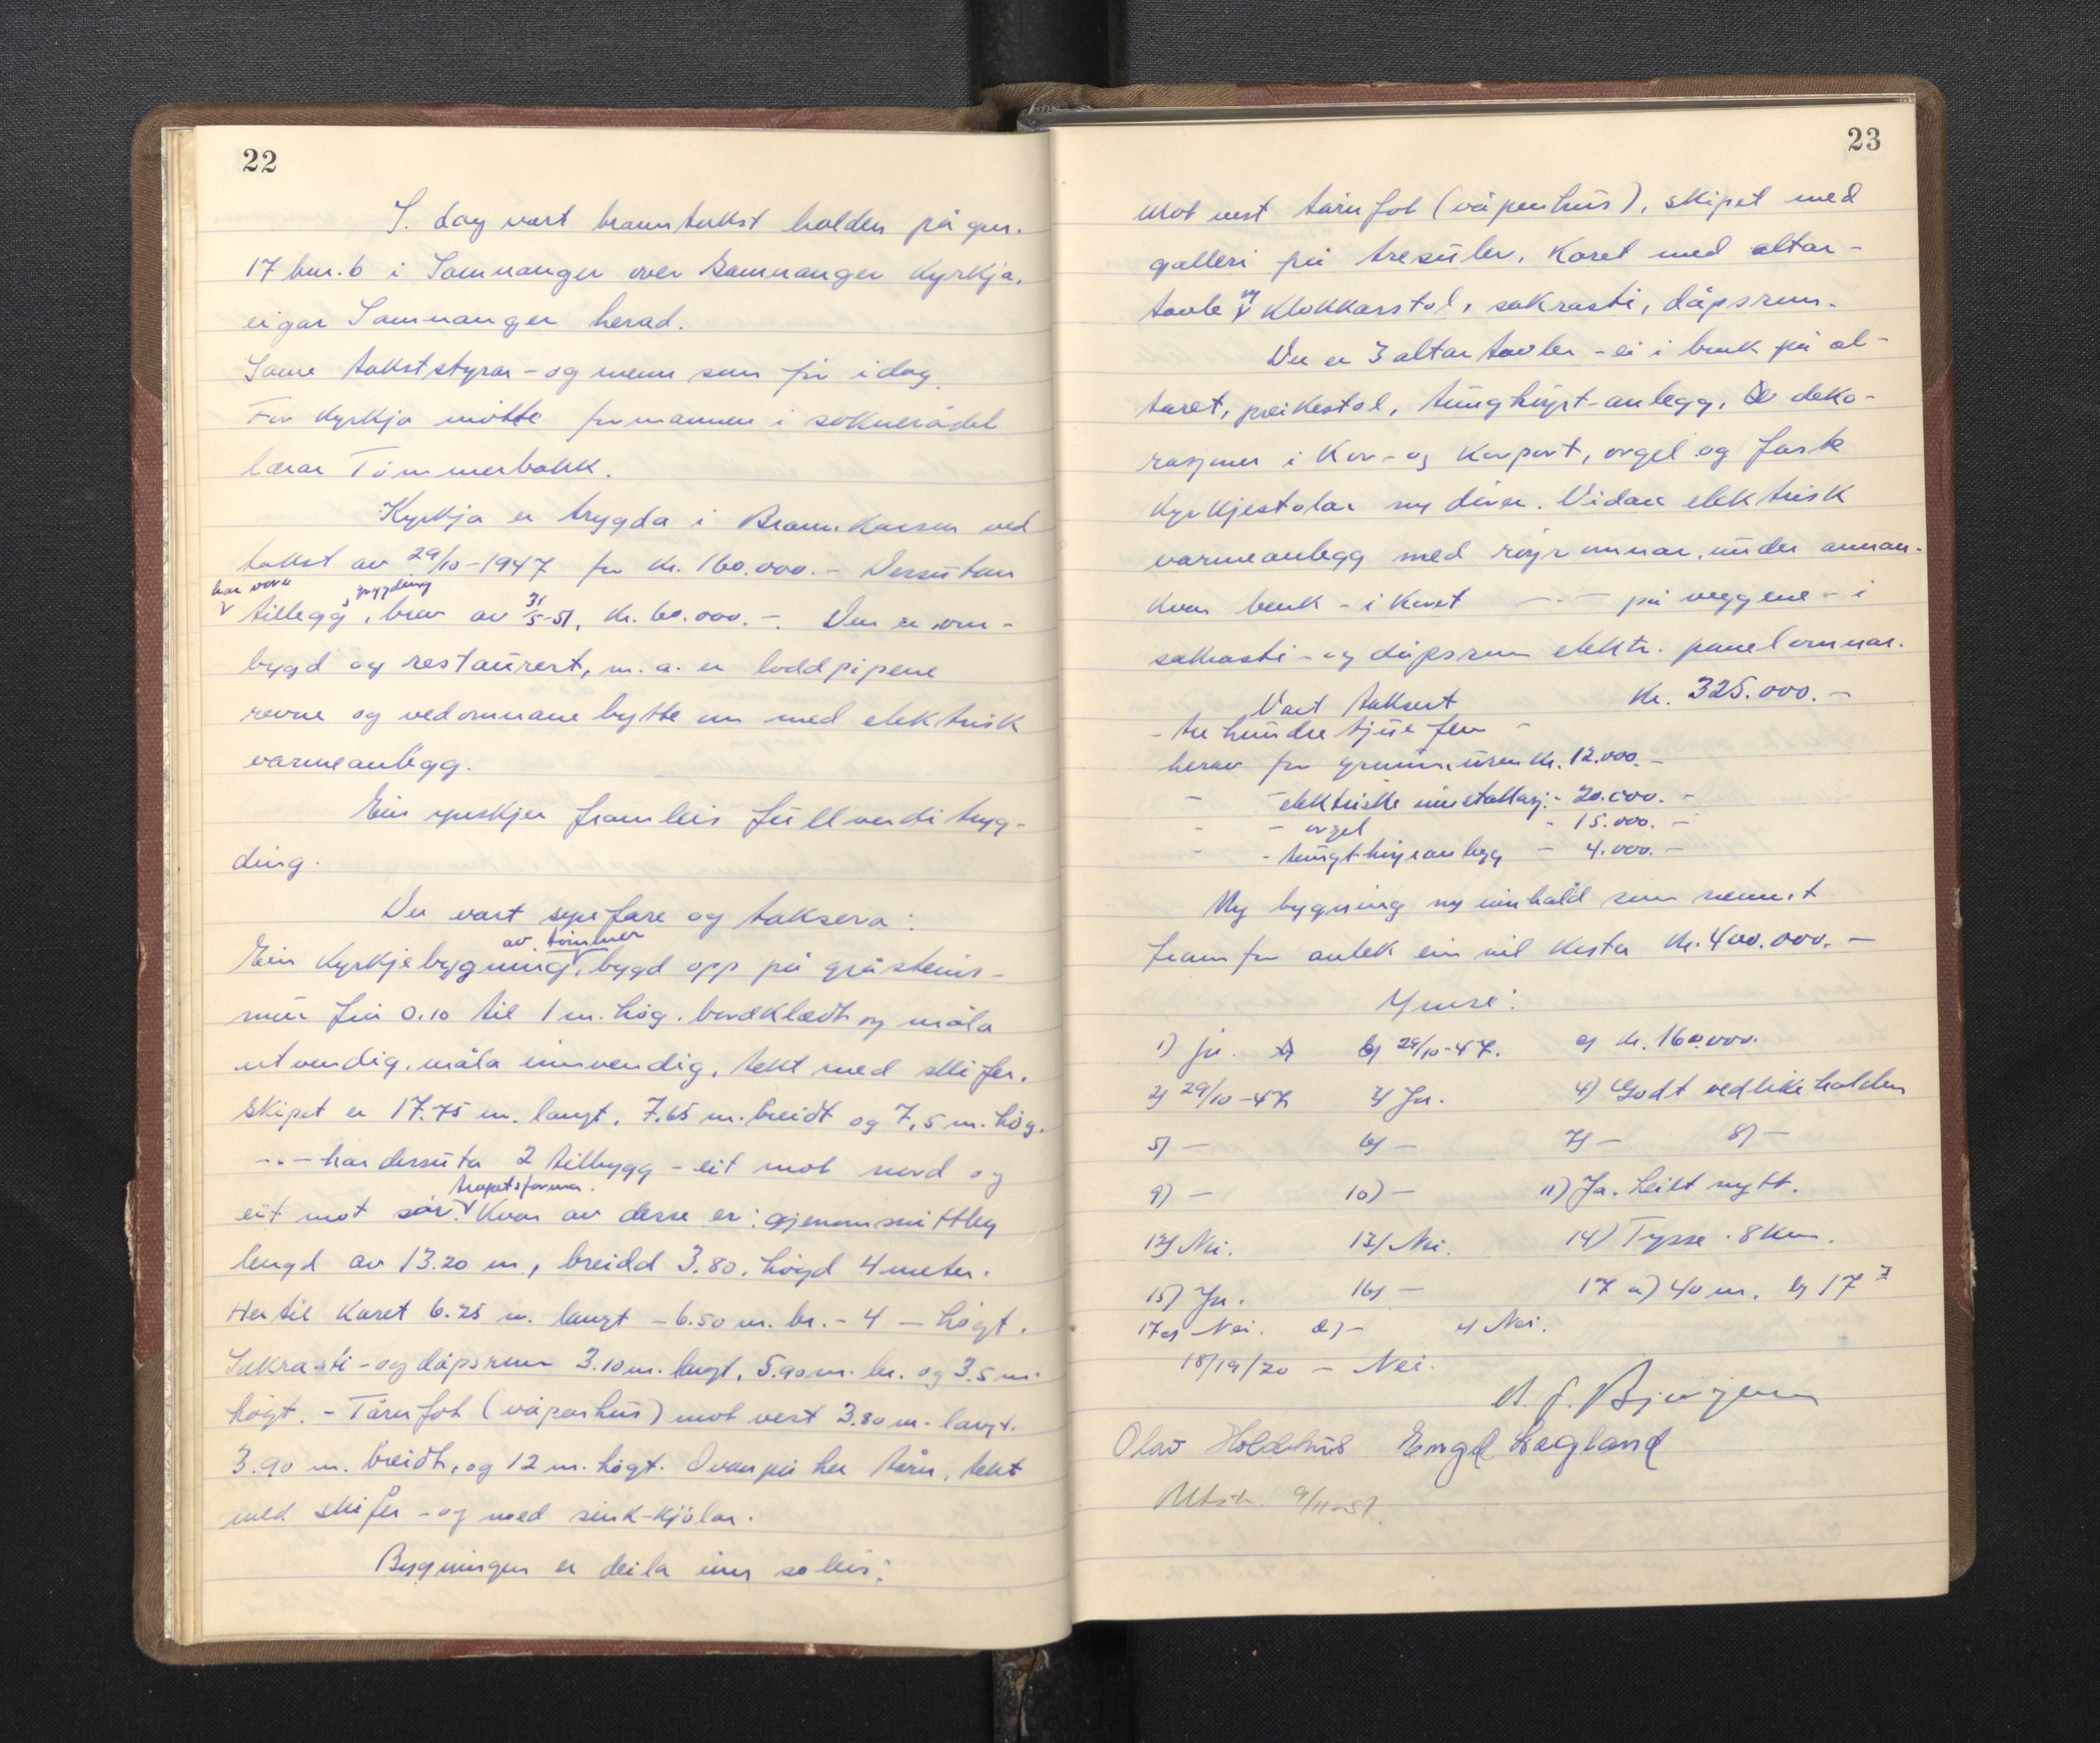 22
I dag vart branntakst halden på gnr.
17 bnr. 6 i Samnanger over Samnanger Kyrkja,
eigar Samnanger herad.
Same takststyrar - og menn som fyr idag.
For Kyrkja møtte formannen i soknerådet
lærar Tømmerbakk.
Kyrkja er trygda i Brann.Kassen ved
takst av 29/10-1947 for kr. 160.000.- Dessutan
har vore trygding
tillegg, brev av 31/5-51, kr. 60.000.-. Den er om-
bygd og restaurert, m.a. er loddpipene
revne og vedomnane bytte um med elektrisk
varmeanlegg.
Ein ynskjer framleis fullverditryg-
ding.
Der vart synfare og taksera:
av tømmer
Ein Kyrkjebygning, bygd opp på gråsteins-
mur frå 0.10 til 1 m. høg. bordklædt og måla
utvendig, måla innvendig, tekt med skifer.
Skipet er 17.75 m. langt, 7.65 m. breidt og 7,5 m. høg.
-..- har dessuta 2 tilbygg - eit mot nord og
trapetsforma.
eit mot sør. Kvar av desse er: gjennomsnittleg
lengd av 13.20 m, breidd 3.80, høgd 4 meter.
Her til Koret 6.25 m. langt - 6.50 m. br. - 4 - høgt.
Sakrasti - og dåpsrum 3.10 m. langt, 5.90 m. br. og 3.5 m.
høgt. - Tårnfot (våpenhus) mot vest 3.80 m. langt.
3.90 m. breidt, og 12 m. høgt. Ovanpå her tårn, tekt
med skifer - og med sink-kjølar.
Bygningen er deila inn soleis:
23
Mot vest tårnfot (våpenhus), skipet med
galleri på tresuler, Koret med altar-
og
tavle Klokkarstol, sakrasti, dåpsrum.
Der er 3 altartavler - ei i bruk på al-
taret, preikestol, tunghøyrt-anlegg, deko-
rasjoner i Kor- og Korport, orgel og faste
Kyrkjestolar og dører. Vidare elektrisk
varmeanlegg med røyromnar, under annan-
kvar benk - i Koret -.- på veggene - i
sakrasti - og dåpsrum elektr. panelomnar.
Vart taksert Kr. 325.000.-
- tre hundre tjue fem -
herav for grunnmuren Kr. 12.000.-
- - elektriske installasj. - 20.000.-
- - orgel - 15.000.-
- - tungthøyranlegg - 4.000.-
Ny bygning og innhald som nemnt
framfor antek ein vil kosta Kr. 400.000.-
Ymse:
1) ja. b) 29/10-47. c) Kr. 160.000.
2) 29/10-47 3) Ja. 4) Godt vedlikehalden
5) - 6) - 7) - 8) -
9) - 10) - 11) Ja. Heilt nytt.
12) Nei. 13) Nei. 14) Tysse. 8 Km.
15) Ja. 16) - 17 a) 40 m. b) 17
17 c) Nei. d) - e) Nei.
18/19/20 - Nei.
Olav Holdhus Lægland
Utskr. 9/11-51